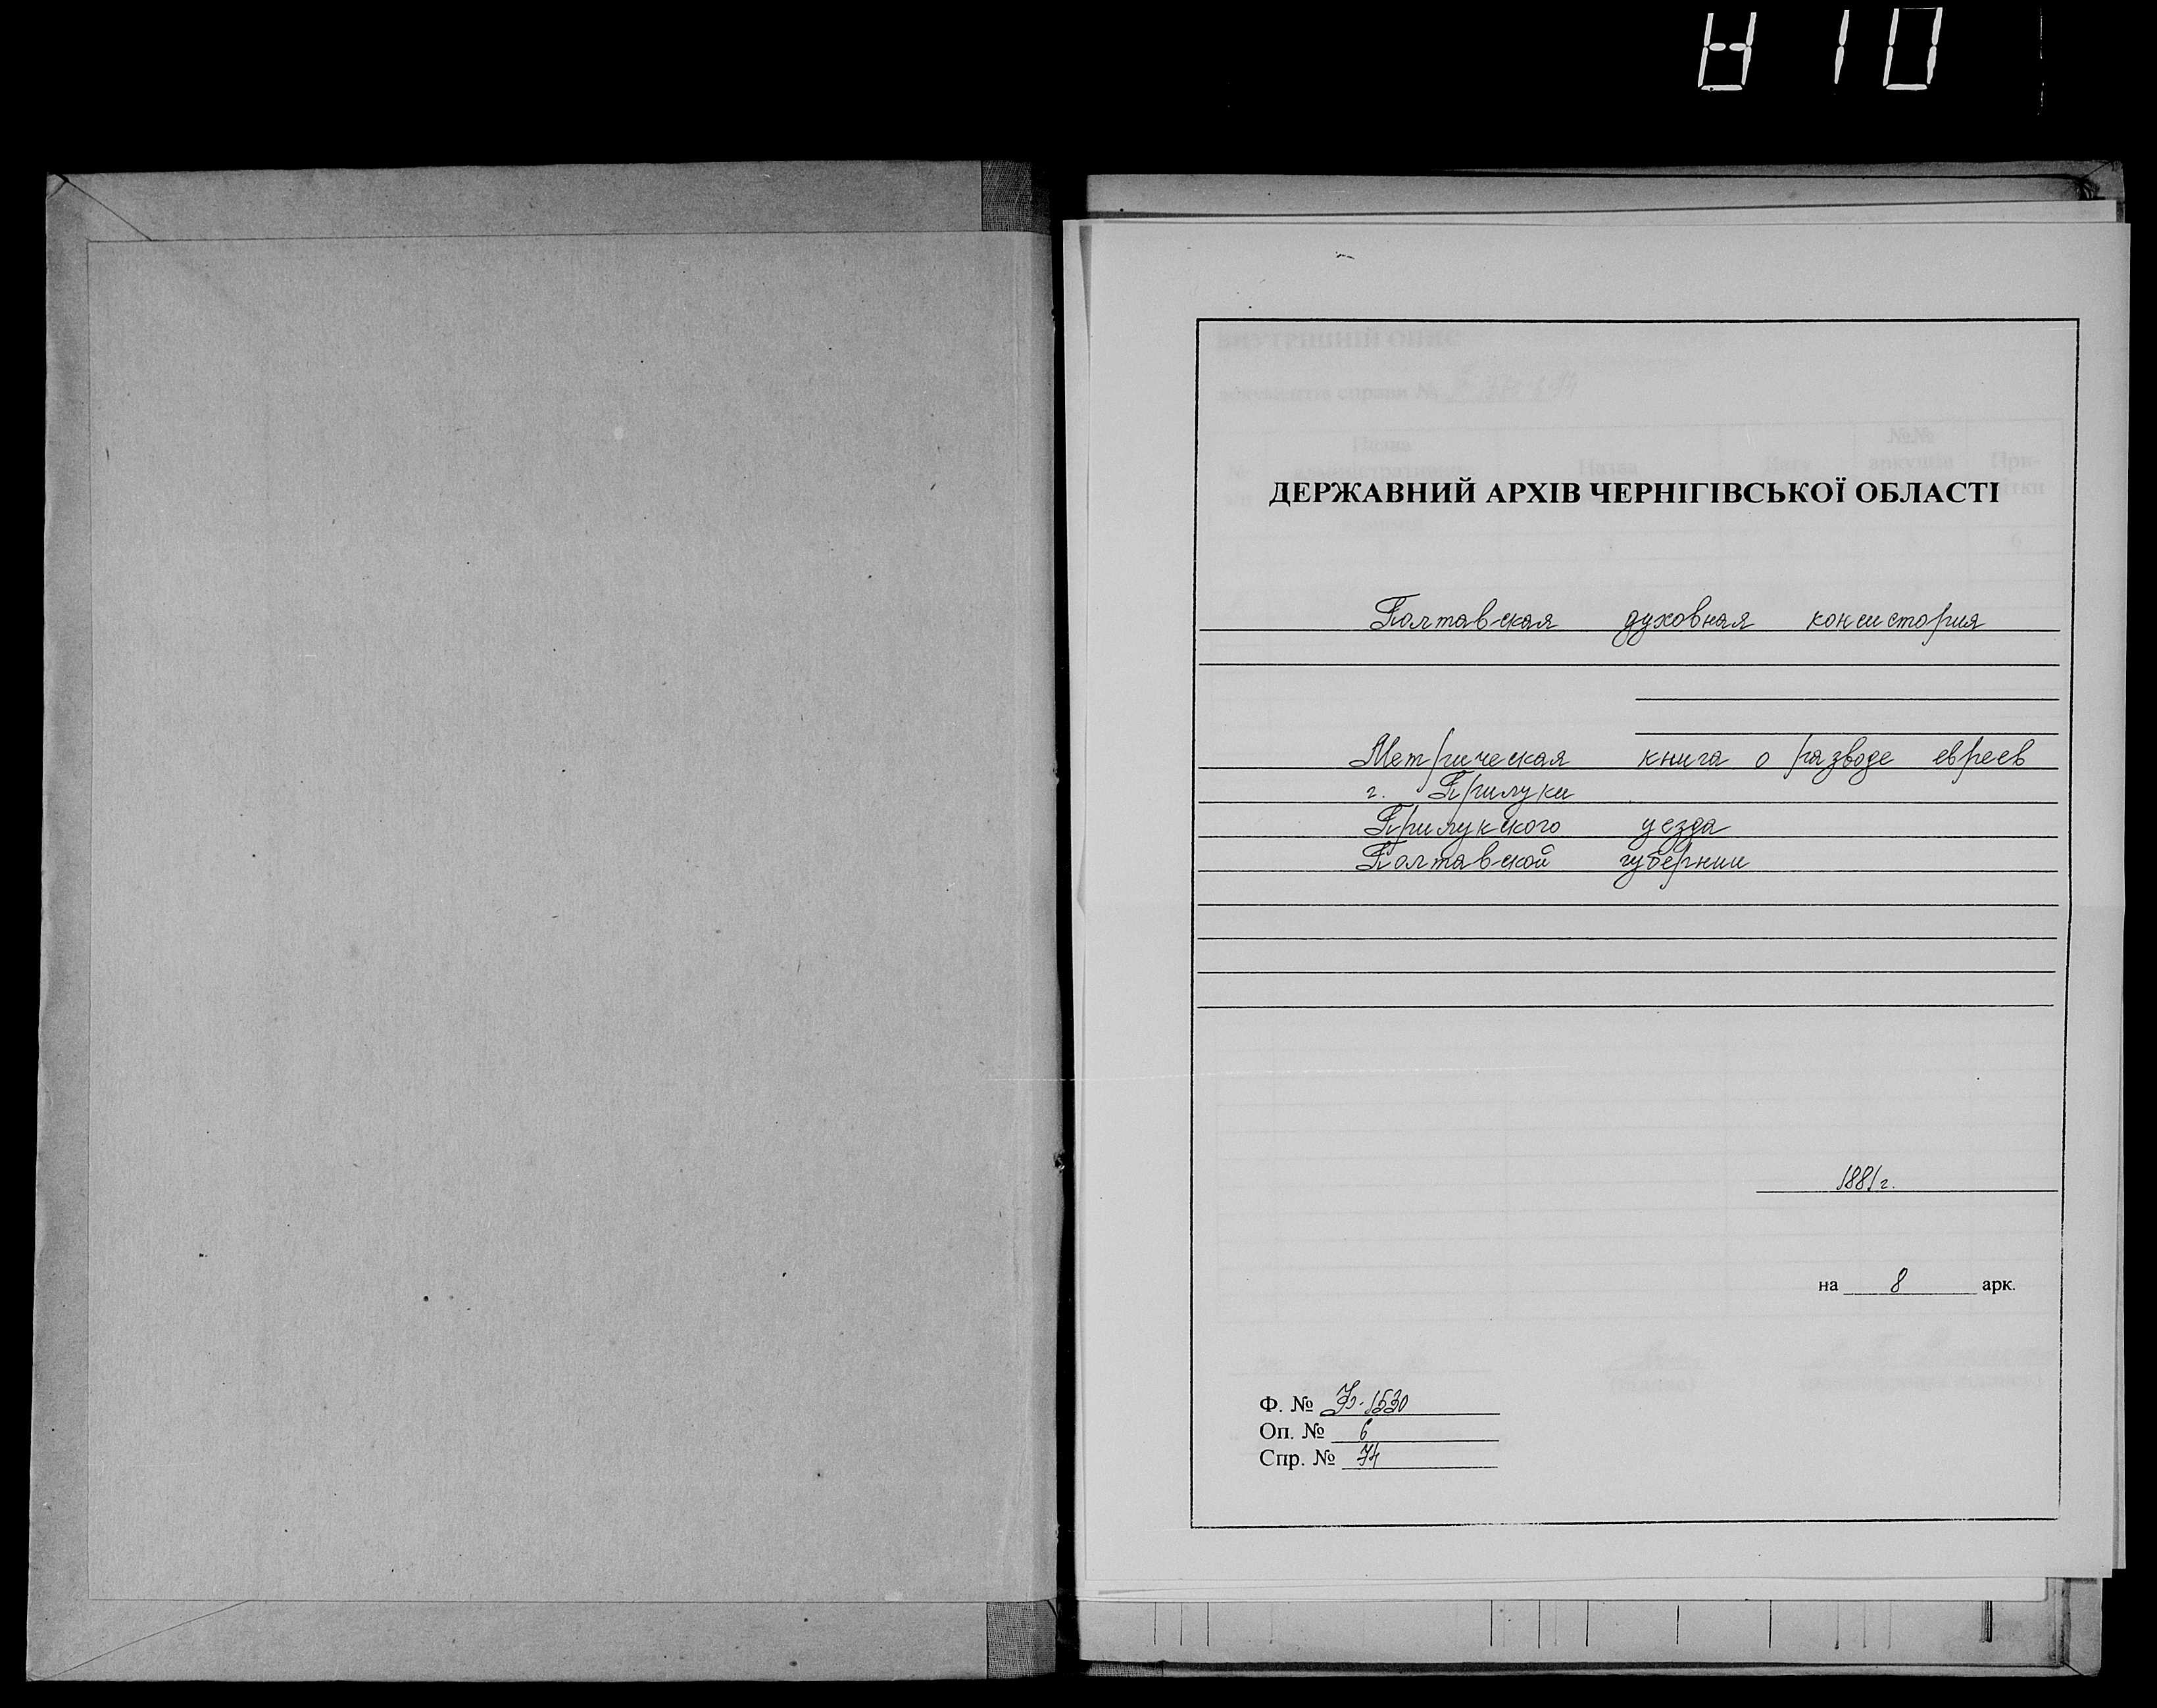 ДЕРЖАВНИЙ АРХІВ ЧЕРНІГІВСЬКОЇ ОБЛАСТІ
Полтавская духовная консистория
Метрическая книга о разводе евреев
г. Прилуки
Прилукского уезда
Полтавской губернии
1881 г.
на 8 арк.
Ф. № 1530
Оп. № 6
Спр. № 74